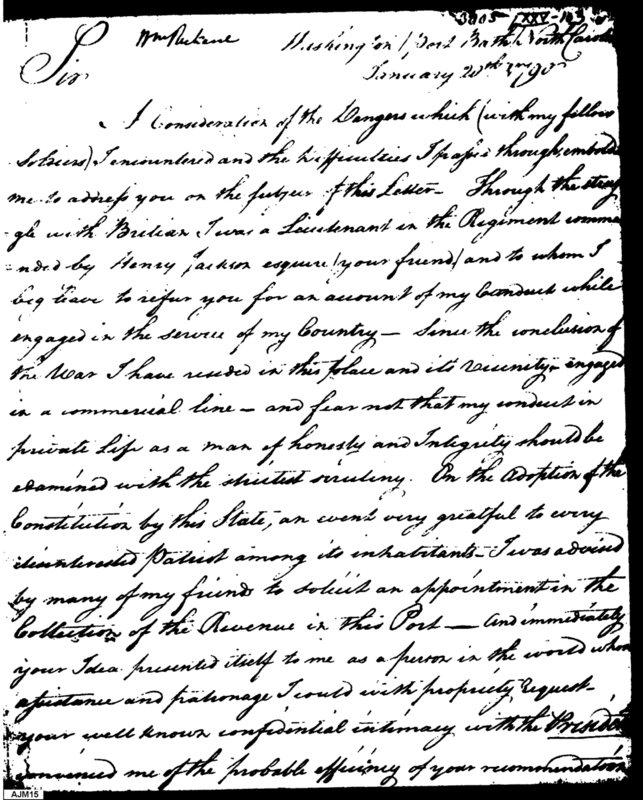 3005 XXV-103
Wm Washington (Port Bath) North Carolina
Sir January 20th 1790
A Consideration of the Dangers which (with my fellow
Soldiers) I encountered and the Difficulties I passed through, embolds
me to address you on the subject of this Letter — Through the strug
gle with Britian I was a Lieutenant in the Regiment comma
=nded by Henry Jackson esquire (your friend) and to whom I
beg leave to refur you for an account of my Conduct while
engaged in the service of my Country — Since the conclusion of
the War I have resided in this place and its vicinity engaged
in a commercial line — and fear not that my conduct in
private Life as a man of honesty and Integrity should be
examined with the strictest scrutiny. On the Adoption of the
Constitution by this State, an event very greatful to every
disinterested Patriot among its inhabitants — I was advised
by many of my friends to solicit an appointment in the
Collection of the Revenue in this Port — And immediately
your Idea presented itself to me as a person in the world whose
assistance and patronage I could with propriety request —
your well known confidential intimacy with the President
convinced me of the probable efficiency of your recommendation
AJM15